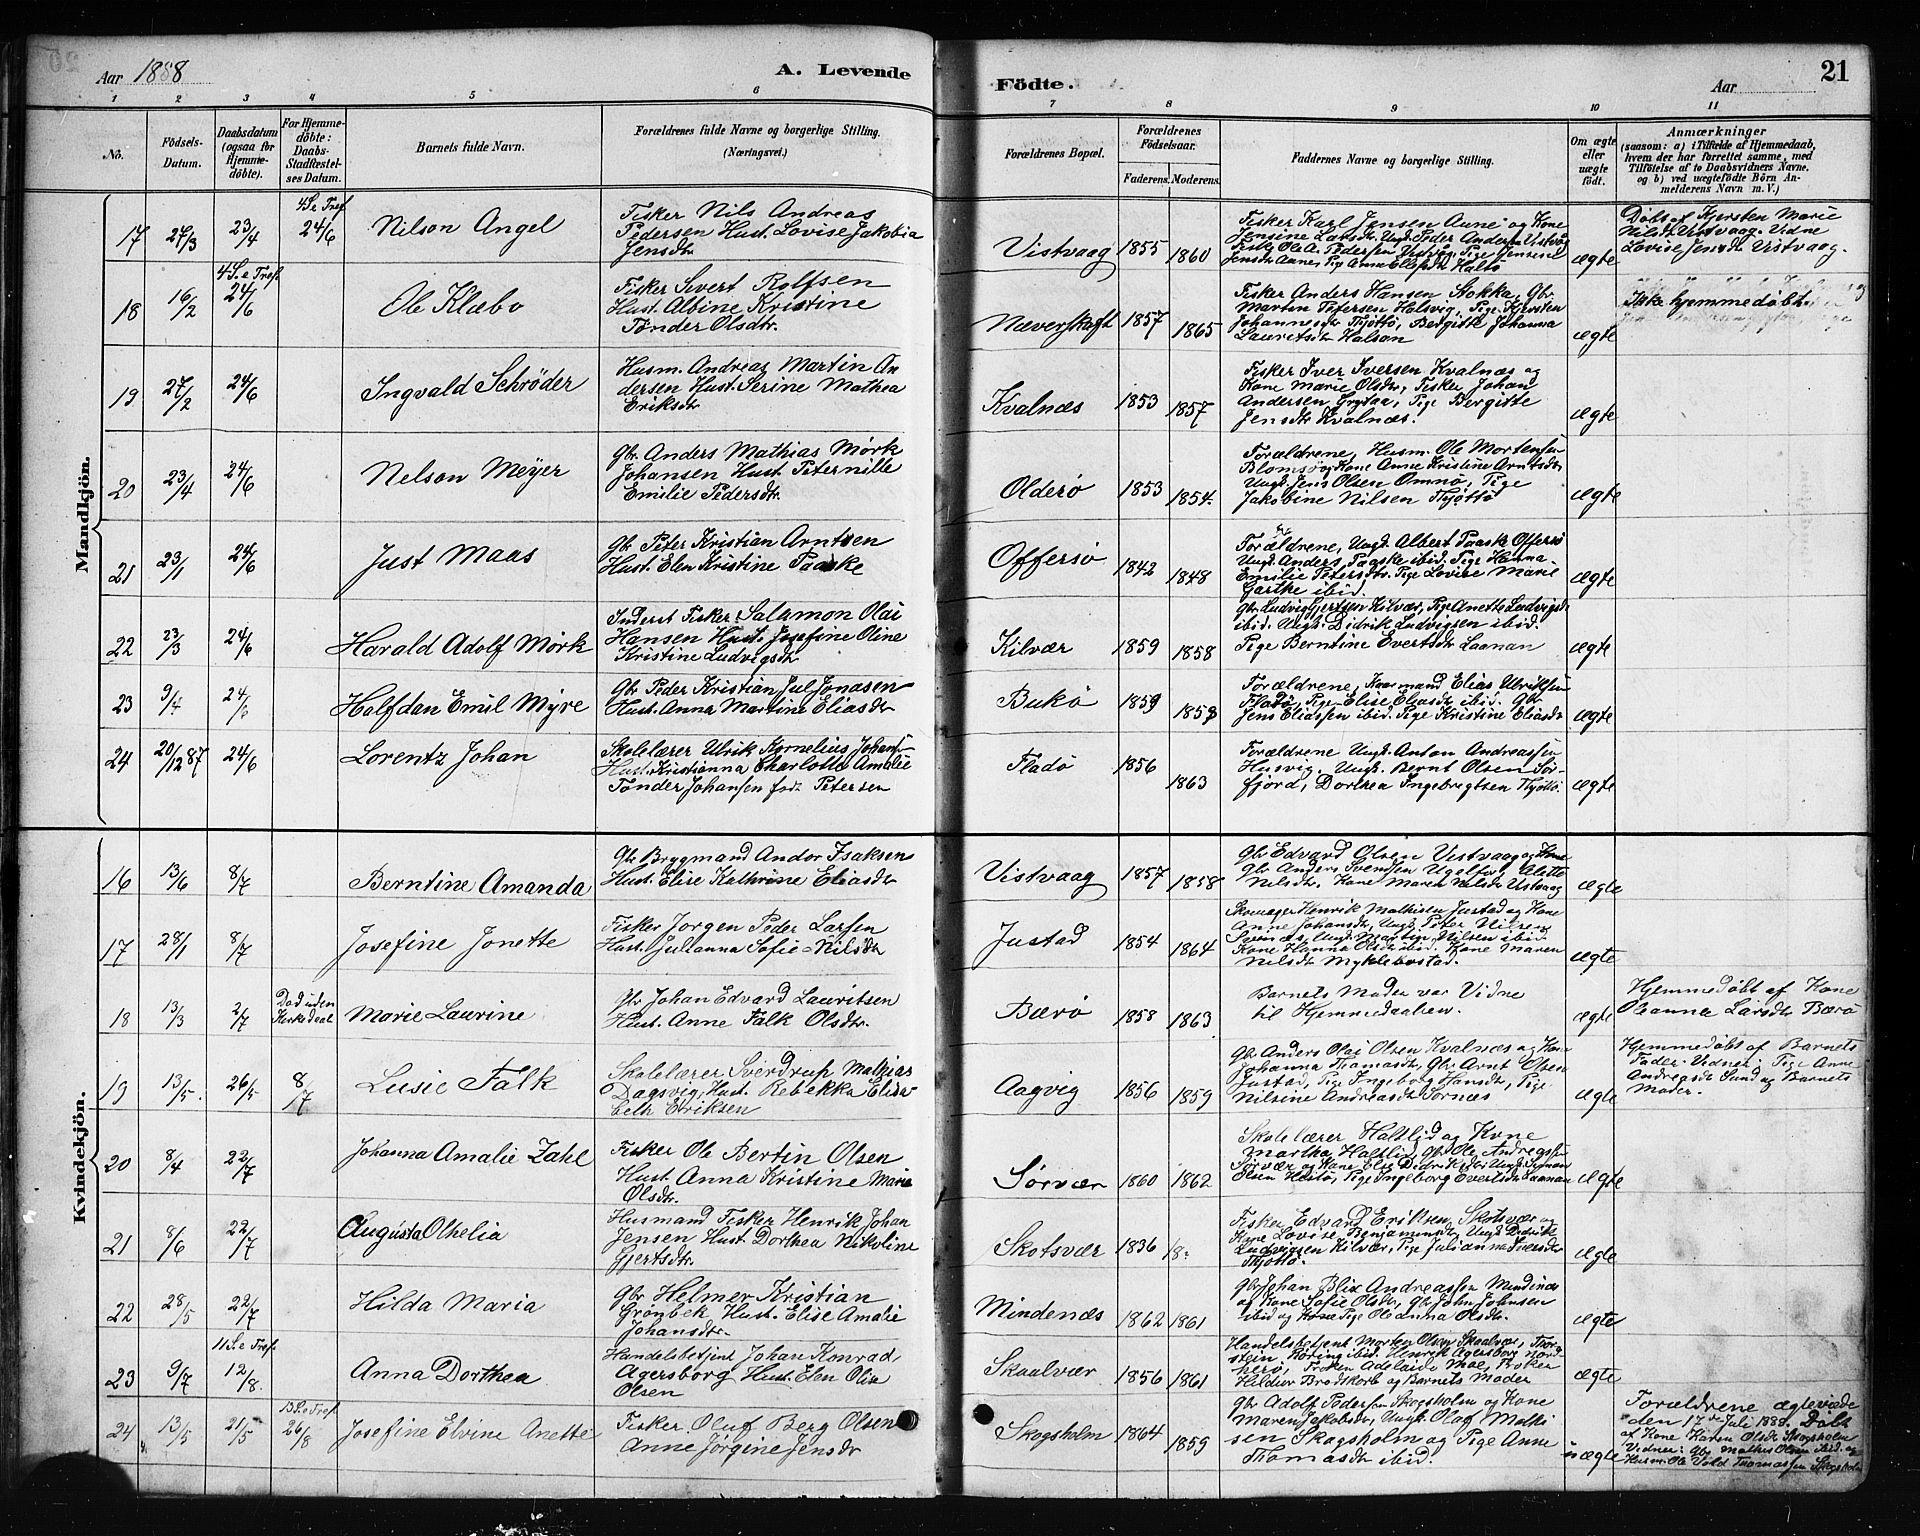 Aar 1888
A. Levende
Födte.
Aar
21
1 2 3 4 5 6 7 8 9 10 11
No.
Födsels-
Datum.
Daabsdatum
(ogsaa for
Hjemme-
döbte).
For Hjemme-
döbte:
Daabs-
Stadfæstel-
ses Datum.
Barnets fulde Navn.
Forældrenes fulde Navne og borgerlige Stilling.
(Næringsvei.)
Forældrenes Bopæl.
Forældrenes
Födselsaar.
Faderens. Moderens.
Faddernes Navne og borgerlige Stilling.
Om ægte
eller
uægte
födt.
Anmærkninger
(saasom: a) i Tilfælde af Hjemmedaab,
hvem der har forrettet samme, med
Tilföielse af to Daabsvidners Navne,
og b) ved uægtefödte Börn An-
melderens Navn m. V.)
Mandkjön.
17 27/3 23/4 4 S. e Tref. 24/6 Nilson Angel
Fisker Nils Andreas
Pedersen Hust. Lovise Jakobia
Jensdtr
Vistvaag 1855 1860
Fisker Karl Jensen Aune og Kone
Jensine Larsdtr, Ungk. Peder Andersen Vistvåg
ægte
Döbt af Kjersten Marie
Nilsdtr Vistvaag. Vidne
Lovise Jensdtr Vistvaag.
18 16/2 4 S. e Tref. 24/6 Ole Klæbo
Fisker Sivert Rolfsen
Hust. Albine Kristine
Tønder Olsdtr.
Næverskaft 1857 1865
Fisker Anders Hansen Stokka, Gbr.
Martin Petersen Halsvig, Pige Kjersten
Johannesdtr Thjöttö, Bergitte Johanna
Lauritsdtr Halsan
ægte
Ikke hjemmedöbt
19 27/2 24/6 Ingvald Schrøder
Husm. Andreas Martin An
dersen Hust. Serine Mathea
Eriksdtr
Kvalnæs 1853 1857
Fisker Iver Iversen Kvalnæs og
Kone Marie Olsdtr, Fisker Johan
Andersen Grytaa, Pige Bergitte
Jensdtr Kvalnæs.
ægte
20 23/4 24/6 Nelson Meyer
Gbr. Anders Mathias Mørk
Johansen Hust. Peternille
Emilie Pedersdtr.
Olderø 1853 1854.
Forældrene, Husm. Ole Mortensen
Blomsø og Kone Anne Kristine Arntsdtr
Ungk. Jens Olsen Omnø, Pige
Jakobine Nilsen Thjöttö
ægte
21 23/1 24/6 Just Maas
Gbr Peter Kristian Arntsen
Hust. Elen Kristine Paaske
Offersø 1842 1848
Forældrene, Ungk. Albert Paask Offersø
Ungk. Anders Paaske ibid. Pige Hanna
Emilie Petersdtr. Pige Lovise Marie
ibid.
ægte
22 23/3 24/6 Harald Adolf Mørk
Inderst Fisker Salamon Olai
Hansen Hust. Josefine Oline
Kristine Ludvigsdtr
Kilvær 1859 1858
Gbr Ludvig Gjertsen Kilvær, Pige Anette Ludvigsd.
ibid. Ungk. Didrik Ludvigsen ibid.
Pige Berntine Evertsdtr Laanan
ægte
23 9/4 24/6 Halfdan Emil Myre
Gbr Peder Kristian Jul Jonasen
Hust. Anna Martine Eliasdtr
Bukø 1859
Forældrene, Kaarmand Elias Ulriksen
Fladø, Pige Elise Eliasdtr ibid. Gbr
Jens Eliassen ibid. Pige Kristine Eliasdtr
ægte
24 20/12 87 24/6 Lorentz Johan
Skolelærer Ulrik Kornelius Johansen
Hust. Kristianna Charlotte Amalie
Tønder Johansen født Petersen
Fladø 1856 1863
Forældrene Ungk. Anton Andreassen
Husvig. Ungk. Bernt Olsen Sør-
fjord, Dorthea Ingebrigtsen Thjöttö.
ægte
Kvindekjön.
16 13/6 8/7 Berntine Amanda
Gbr Brygmand Andor Isaksen
Hust. Elise Kathrine Eliasdtr
Vistvaag 1857 1858
Gbr Edvard Olsen Vistvaag og Kone
Gbr Anders Svendsen
Nilsdtr. Kone Maren Nilsdtr Vistvaag
ægte
17 28/1 8/7 Josefine Jonette
Fisker Jørgen Peder Larsen
Hust. Julianna Sofie Nilsdtr
Justad 1854 1864
Skomager Henrik Mathisen Justad og Kone
Anne Johansdtr, Ungk. Peter Nilsen
Ungk. Martin Nilsen ibid
Kone Hanna Olsdtr ibid. Kone Maren
Nilsdtr Myklebostad.
ægte
18 13/3 2/7 Død uden Kirkedaab Marie Laurine
Gbr Johan Edvard Lauritsen
Hust. Anne Falk Olsdtr.
Bærø 1858 1863
Barnets Moder var Vidne
til Hjemmedaaben.
ægte
Hjemmedöbt af Kone
Oleanna Larsdtr Bærø
19 13/5. 26/5 8/7 Lusie Falk
Skolelærer Sverdrup Mathias
Dagsvig, Hust. Rebekka Elisa
beth Eriksen
Aagvig 1856 1859
Gbr Anders Olai Olsen Kvalnæs og Kone
Johanna Thomasdtr, Gbr. Arnt Olsen
Justad, Pige Ingeborg Hansdtr, Pige
Nilsine Andreasdtr Sornæs
ægte
Hjemmedöbt af Barnets
Fader. Vidner: Pige Anne
Andreasdtr Sund og Barnets
Moder.
20 8/4 22/7 Johanna Amalie Zahl
Fisker Ole Bertin Olsen
Hust. Anna Kristine Marie
Olsdtr.
Sørvær 1860 1862
Skolelærer Haltlid og Kone
Martha Haltlid, Gbr Ole Andreassen
Sørvær og Kone Else Didriksdtr Ungk.
Olsen Hestø, Pige Ingeborg Evertsdtr Laanan
ægte
21 8/6 22/7 Augusta Othelia
Husmand Fisker Henrik Johan
Jensen Hust. Dorthea Nikoline
Gjertsdtr.
Skotsvær 1836 18
Fisker Edvard Eriksen Skotsvær og
Kone Lovise Benjaminsdtr, Ungk Didrik
Ludvigsen Kilvær, Pige Julianna Iversdtr
Thjöttö.
ægte
22 28/5 22/7 Hilda Maria
Gbr Helmer Kristian
Grønbek Hust. Elise Amalie
Johansdtr.
Mindenæs 1862 1861
Gbr Johan Blix Andreassen Mindenæs
og Kone Sofie Olsdtr, Gbr John Johnsen
ibid og Kone Pige Oleanna Olsdtr.
ægte
23 9/7 11 S. e Tref. 12/8. Anna Dorthea
Handelsbetjent Johan Konrad
Agersborg Hust. Elen Olia
Olsen
Skaalvær 1856 1861
Handelsbetjent Morten Olsen Skaalvær, Thor
stein Köring ibid. Henrik Agersborg
Frøken Adelaide Moe, Frøken
Hildur Brodskorb og Barnets Moder
ægte
24 13/5 21/5 13 S. e Tref. 26/8 Josefine Elvine Anette
Fisker Oluf Berg Olsen
Anne Jørgine Jensdtr
Skogsholm 1864 1859
Gbr Adolf Pedersen Skogsholm og Kone
Maren Jakobsdtr, Ungk. Olaf Mathi
sen Skogsholm og Pige Anne
Thomasdtr ibid.
uægte
Forældrene ægteviede
den 17de Juli 1888. Döbt
af Kone Karen Olsdtr Skogsholm
Vidner: Gbr Mathis Olsen ibid. og
Husm. Ole Vold Thomassen Skogsholm